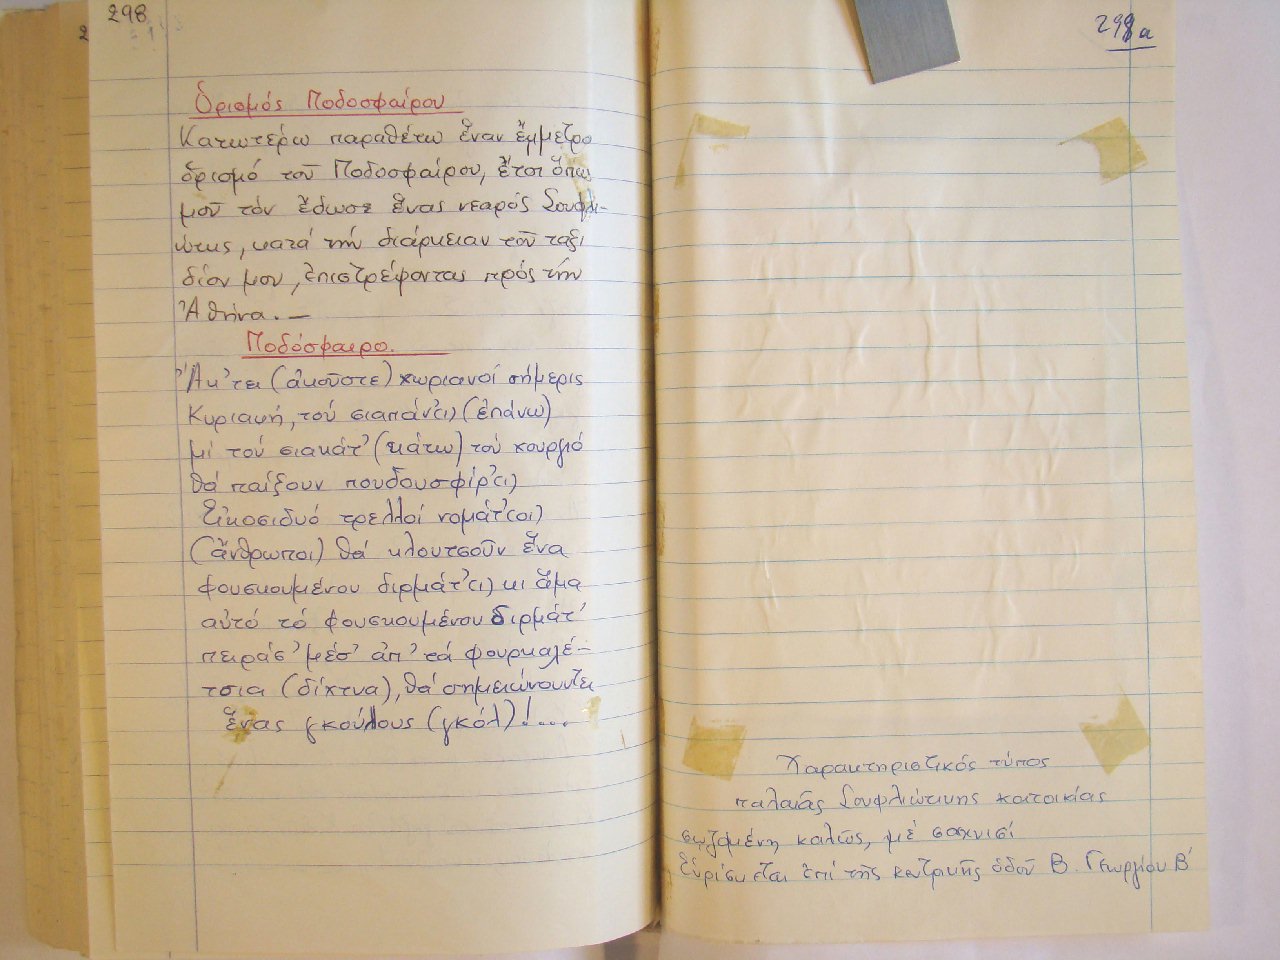 298
Ὁρισμός Ποδοσφαίρου
Κατωτέρω παραθέτω ἕναν ἔμμετρο
ὁρισμό τοῦ Ποδοσφαίρου, ἔτσι ὅπως
μοῦ τόν ἔδωσε ἕνας νεαρός Σουφλι-
ώτης, κατά τήν διάρκειαν τοῦ ταξι
δίου μου, ἐπιστρέφοντας πρός τήν
Ἀθήνα. —
Ποδόσφαιρο.
Ἀκ'τει (ἀκοῦστε) χωριανοί σήμερις
Κυριακή, τού σιαπάν'(ι) (ἐπάνω)
μί τού σιακάτ' (κάτω) τού χουργιό
θά παίξουν πουδουσφίρ'(ι)
Εἰκοσιδυό τρελλοί νομάτ'(οι)
(ἄνθρωποι) θά κλουτσοῦν ἕνα
φουσκουμένου διρμάτ'(ι) κι ἅμα
αὐτό τό φουσκουμένου διρμάτ'
πειράσ' μέσ' ἀπ' τά φουρκαλέ-
τσια (δίχτυα), θά σημειώνουντει
ἕνας γκούλους (γκόλ)!...
298 α
Χαρακτηριστικός τύπος
παλαιᾶς Σουφλιώτικης κατοικίας
σῳζομένη καλῶς, μέ σαχνισί
Εὑρίσκεται ἐπί τῆς κεντρικῆς ὁδοῦ Β. Γεωργίου Β'